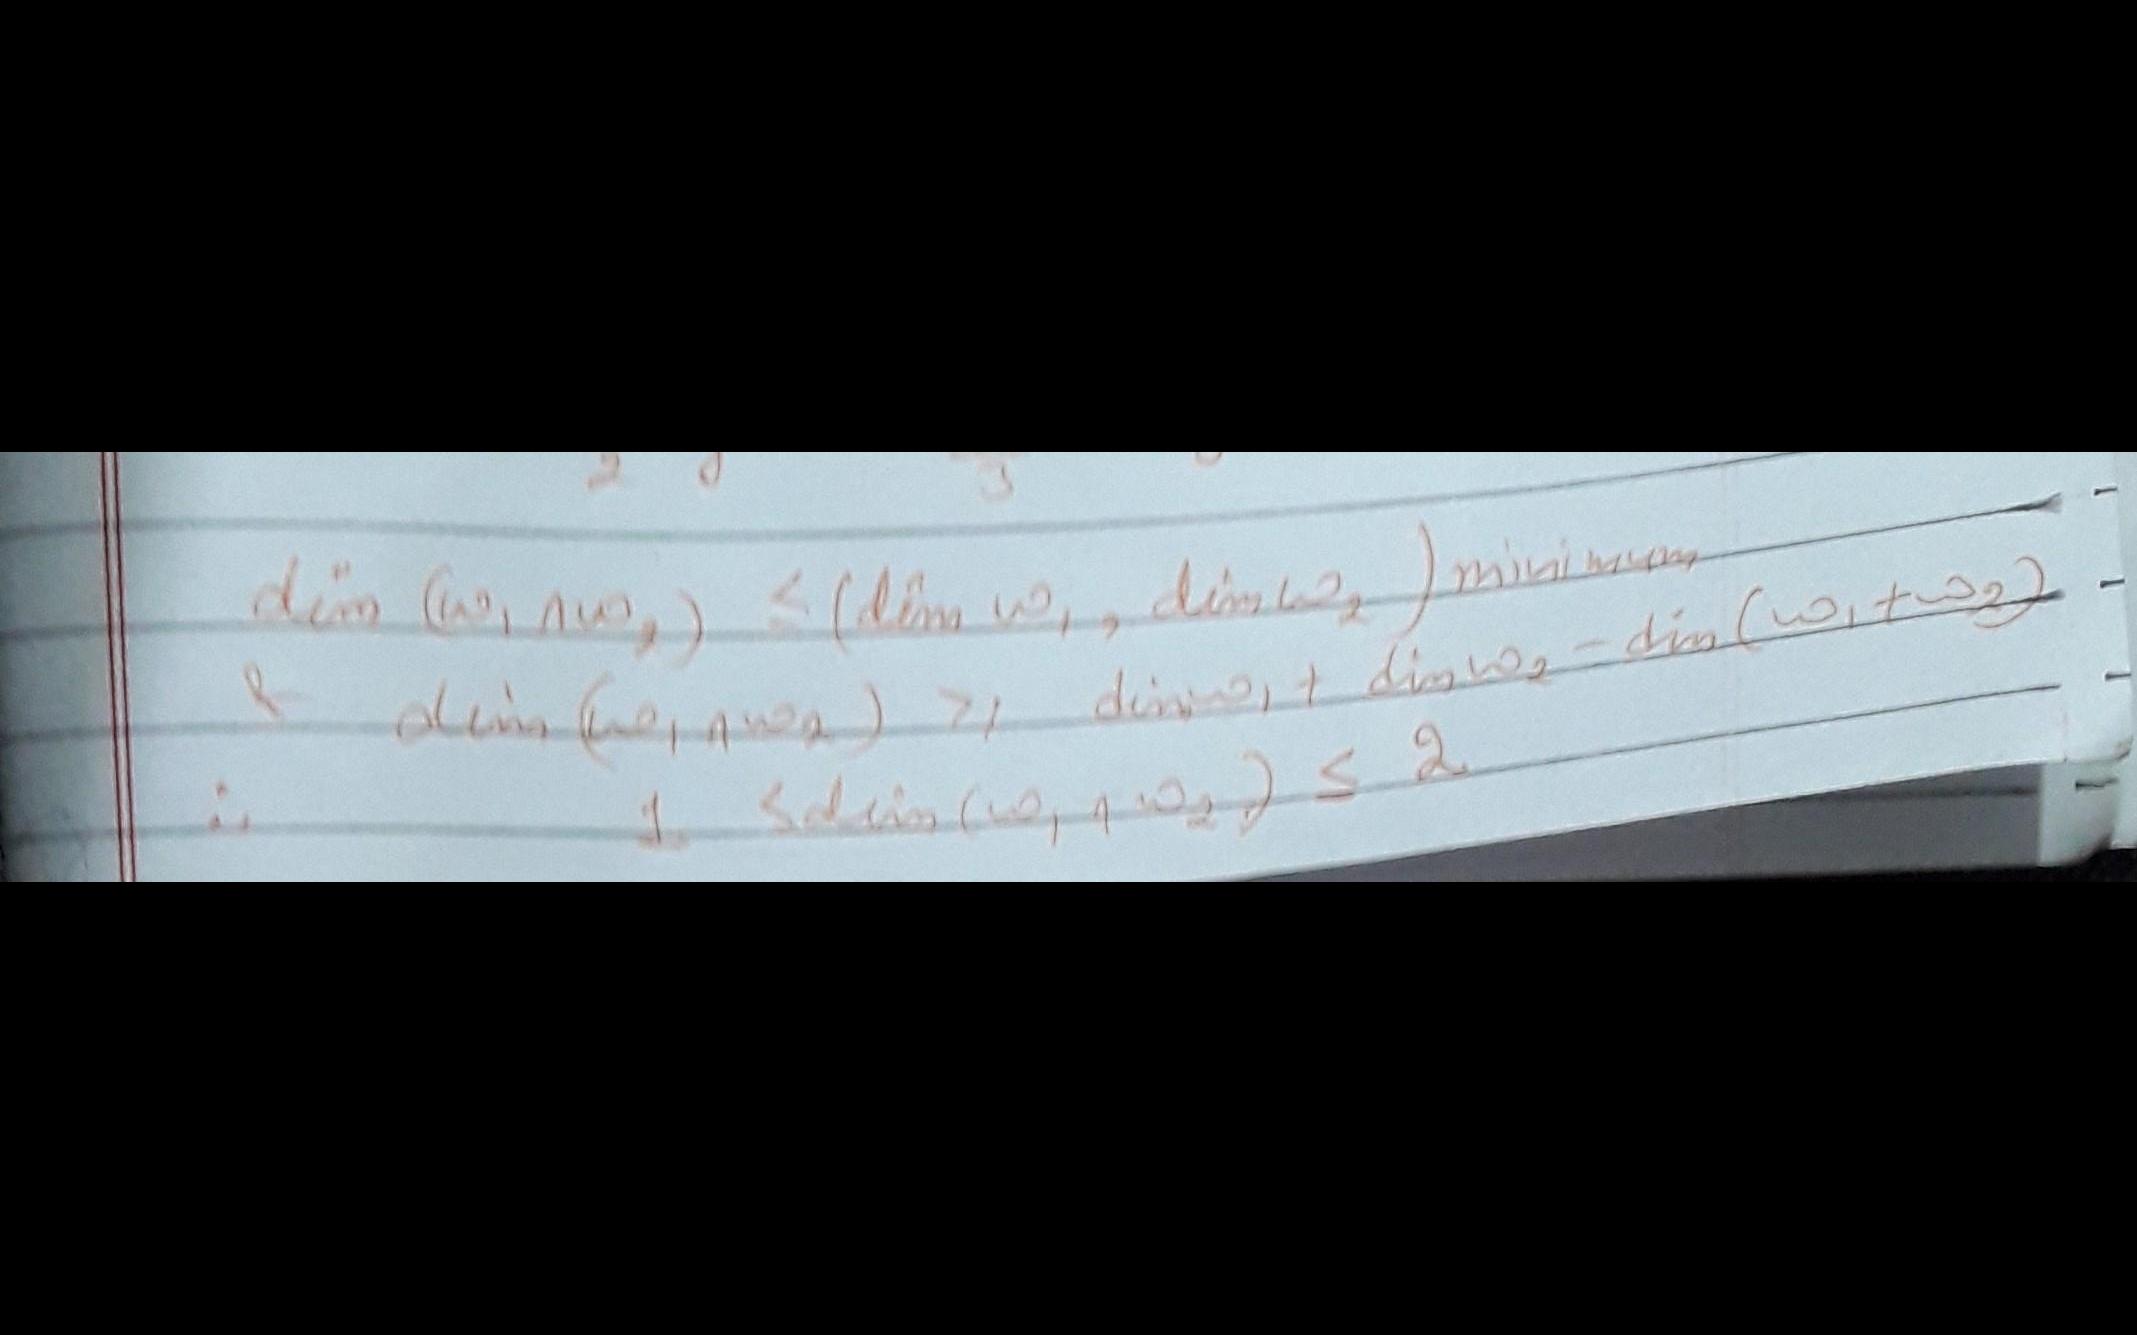 2 3
dim (w₁ ∩ w₂) ≤ (dim w₁, dim w₂) minimum
& dim (w₁ ∩ w₂) ≥ dim w₁ + dim w₂ - dim (w₁ + w₂)
∴ 1 ≤ dim (w₁ ∩ w₂) ≤ 2